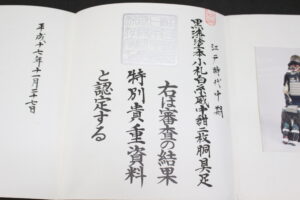 江戸時代中期
黒漆塗本小札白糸威中紺二枚胴具足
右は審査の結果
特別貴重資料
と認定する
平成十七年十一月二十七日